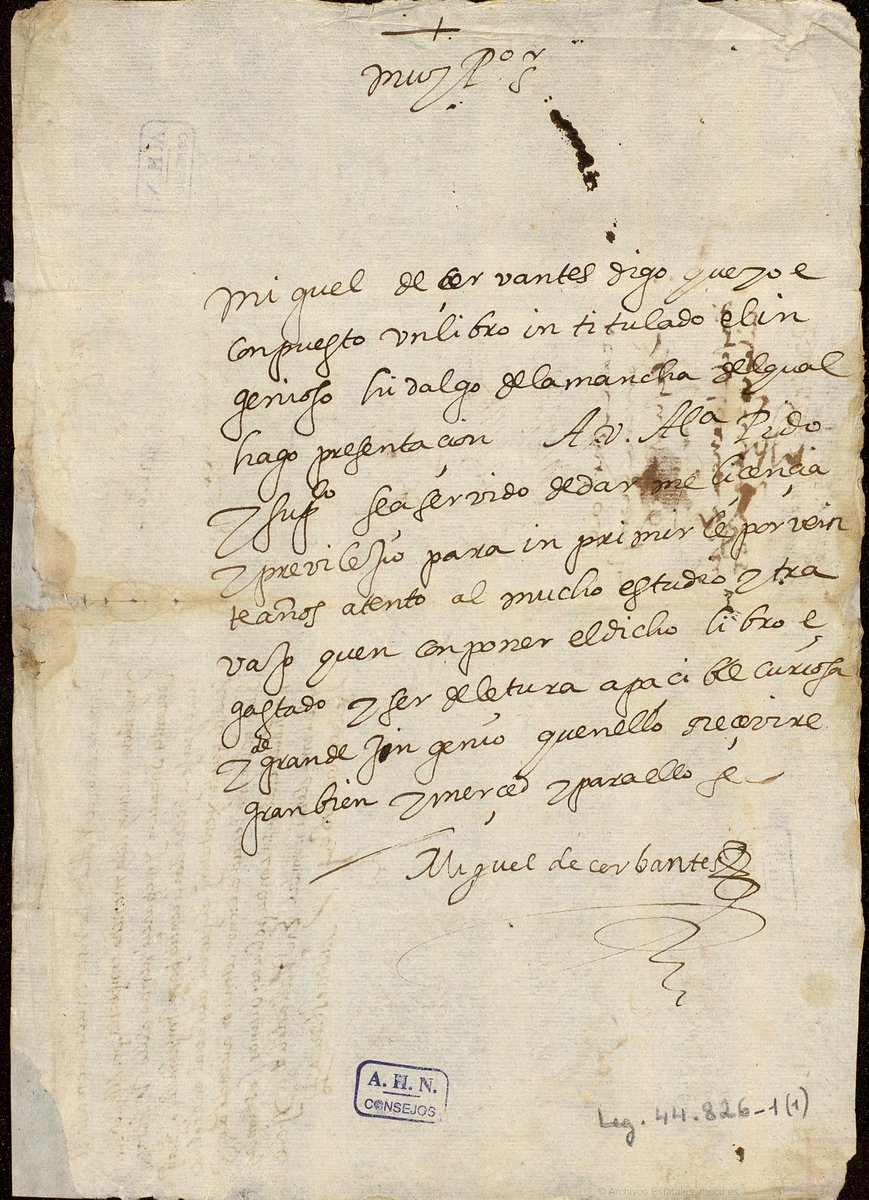 +
muy Pº r s
Miguel de cervantes digo que yo e
conpuesto un libro intitulado el in
genioso hidalgo de la mancha del qual
hago presentacion A v. Alª Pido
y supco sea servido de darme licencia
y previlejio para inprimirle por vein
te años atento al mucho estudio y tra
vajo quen conponer el dicho libro e
gastado y ser de letura apacible curiosa
y de grande injenio quenello recevire
gran bien y merced y para ello &
Miguel de cerbantes
A. H. N.
CONSEJOS
Leg. 44.826-1(1)
© Archivos Estatales, mecd.es